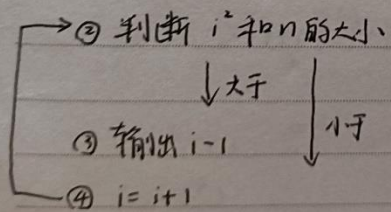 ② 判断 i² 和 n 的大小
大于
小于
③ 输出 i-1
④ i = i+1